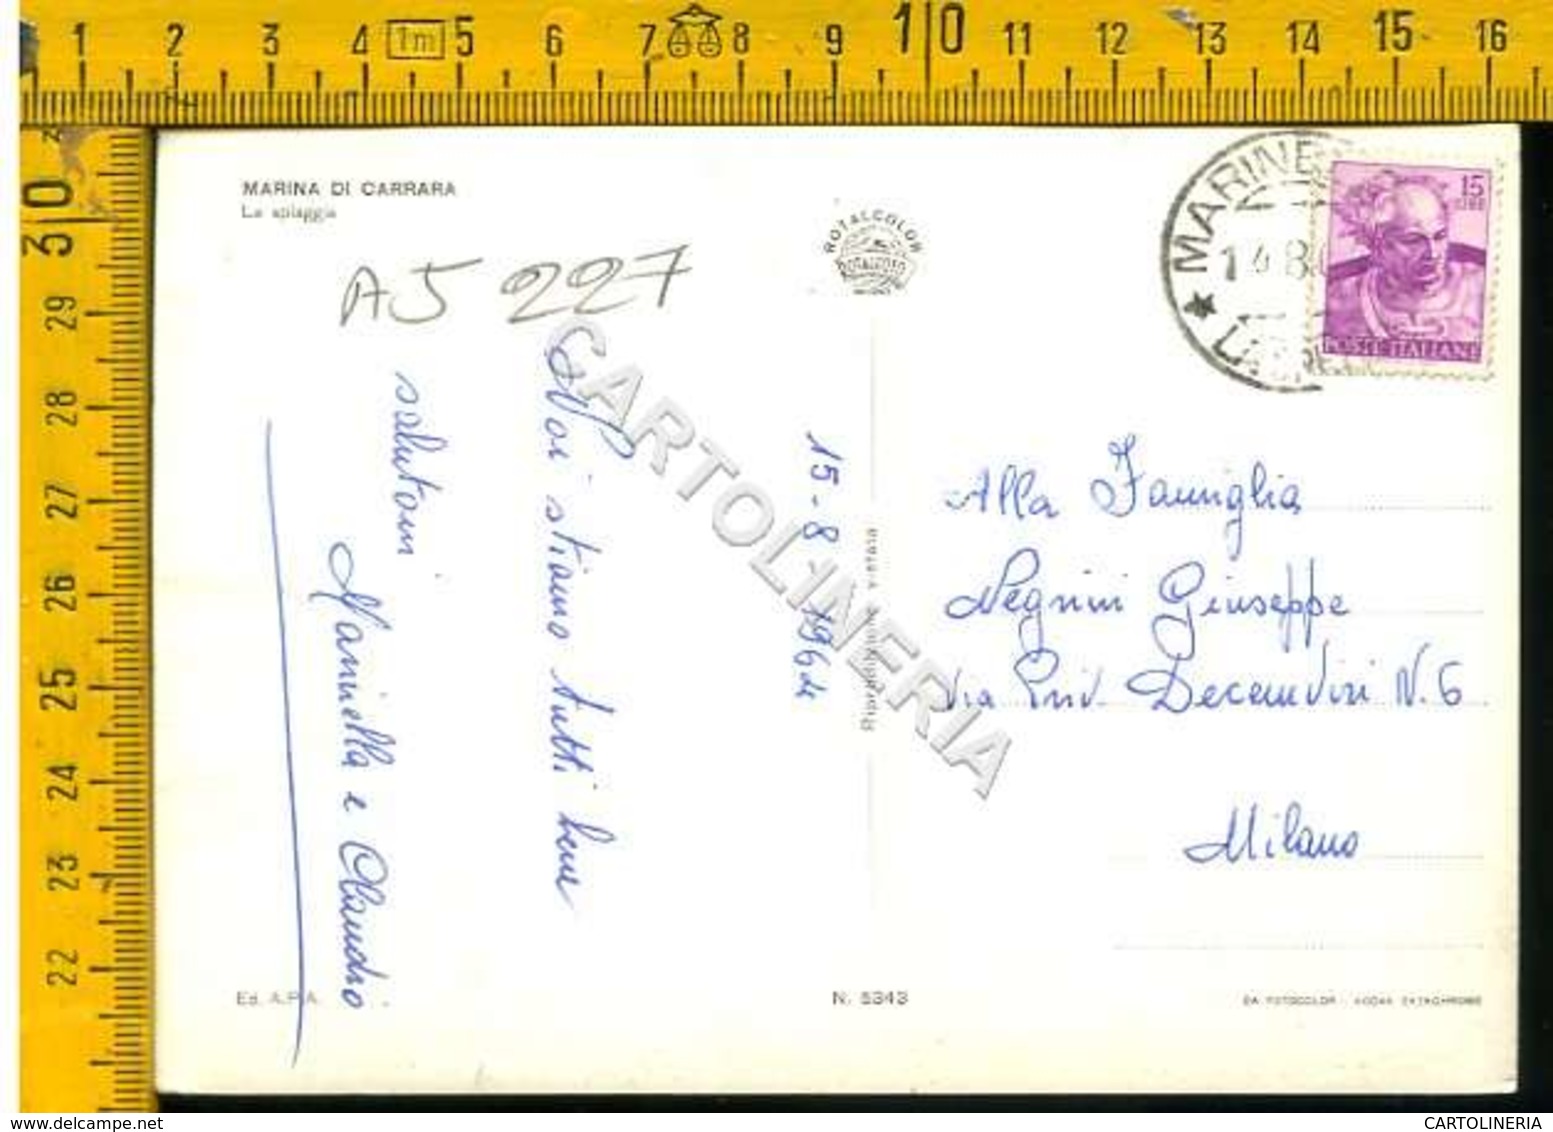 1 2 3 4 1m 5 6 7 8 9 10 11 12 13 14 15 16
30 29 28 27 26 25 24 23 22
MARINA DI CARRARA
La spiaggia
ROTALCOLOR
ROTALFOTO
MARINE
14 8
15
LIRE
POSTE ITALIANE
A5 227
15-8-1964
Noi stiamo tutti bene
salutoni
Marinella e Claudio
Riproduzione vietata
Alla Famiglia
Negrini Giuseppe
Via Priv. Decemviri N. 6
Milano
Ed. A.P.A.
N. 5343
DA FOTOCOLOR - KODAK EKTACHROME
CARTOLINERIA
delcampe.net
CARTOLINERIA